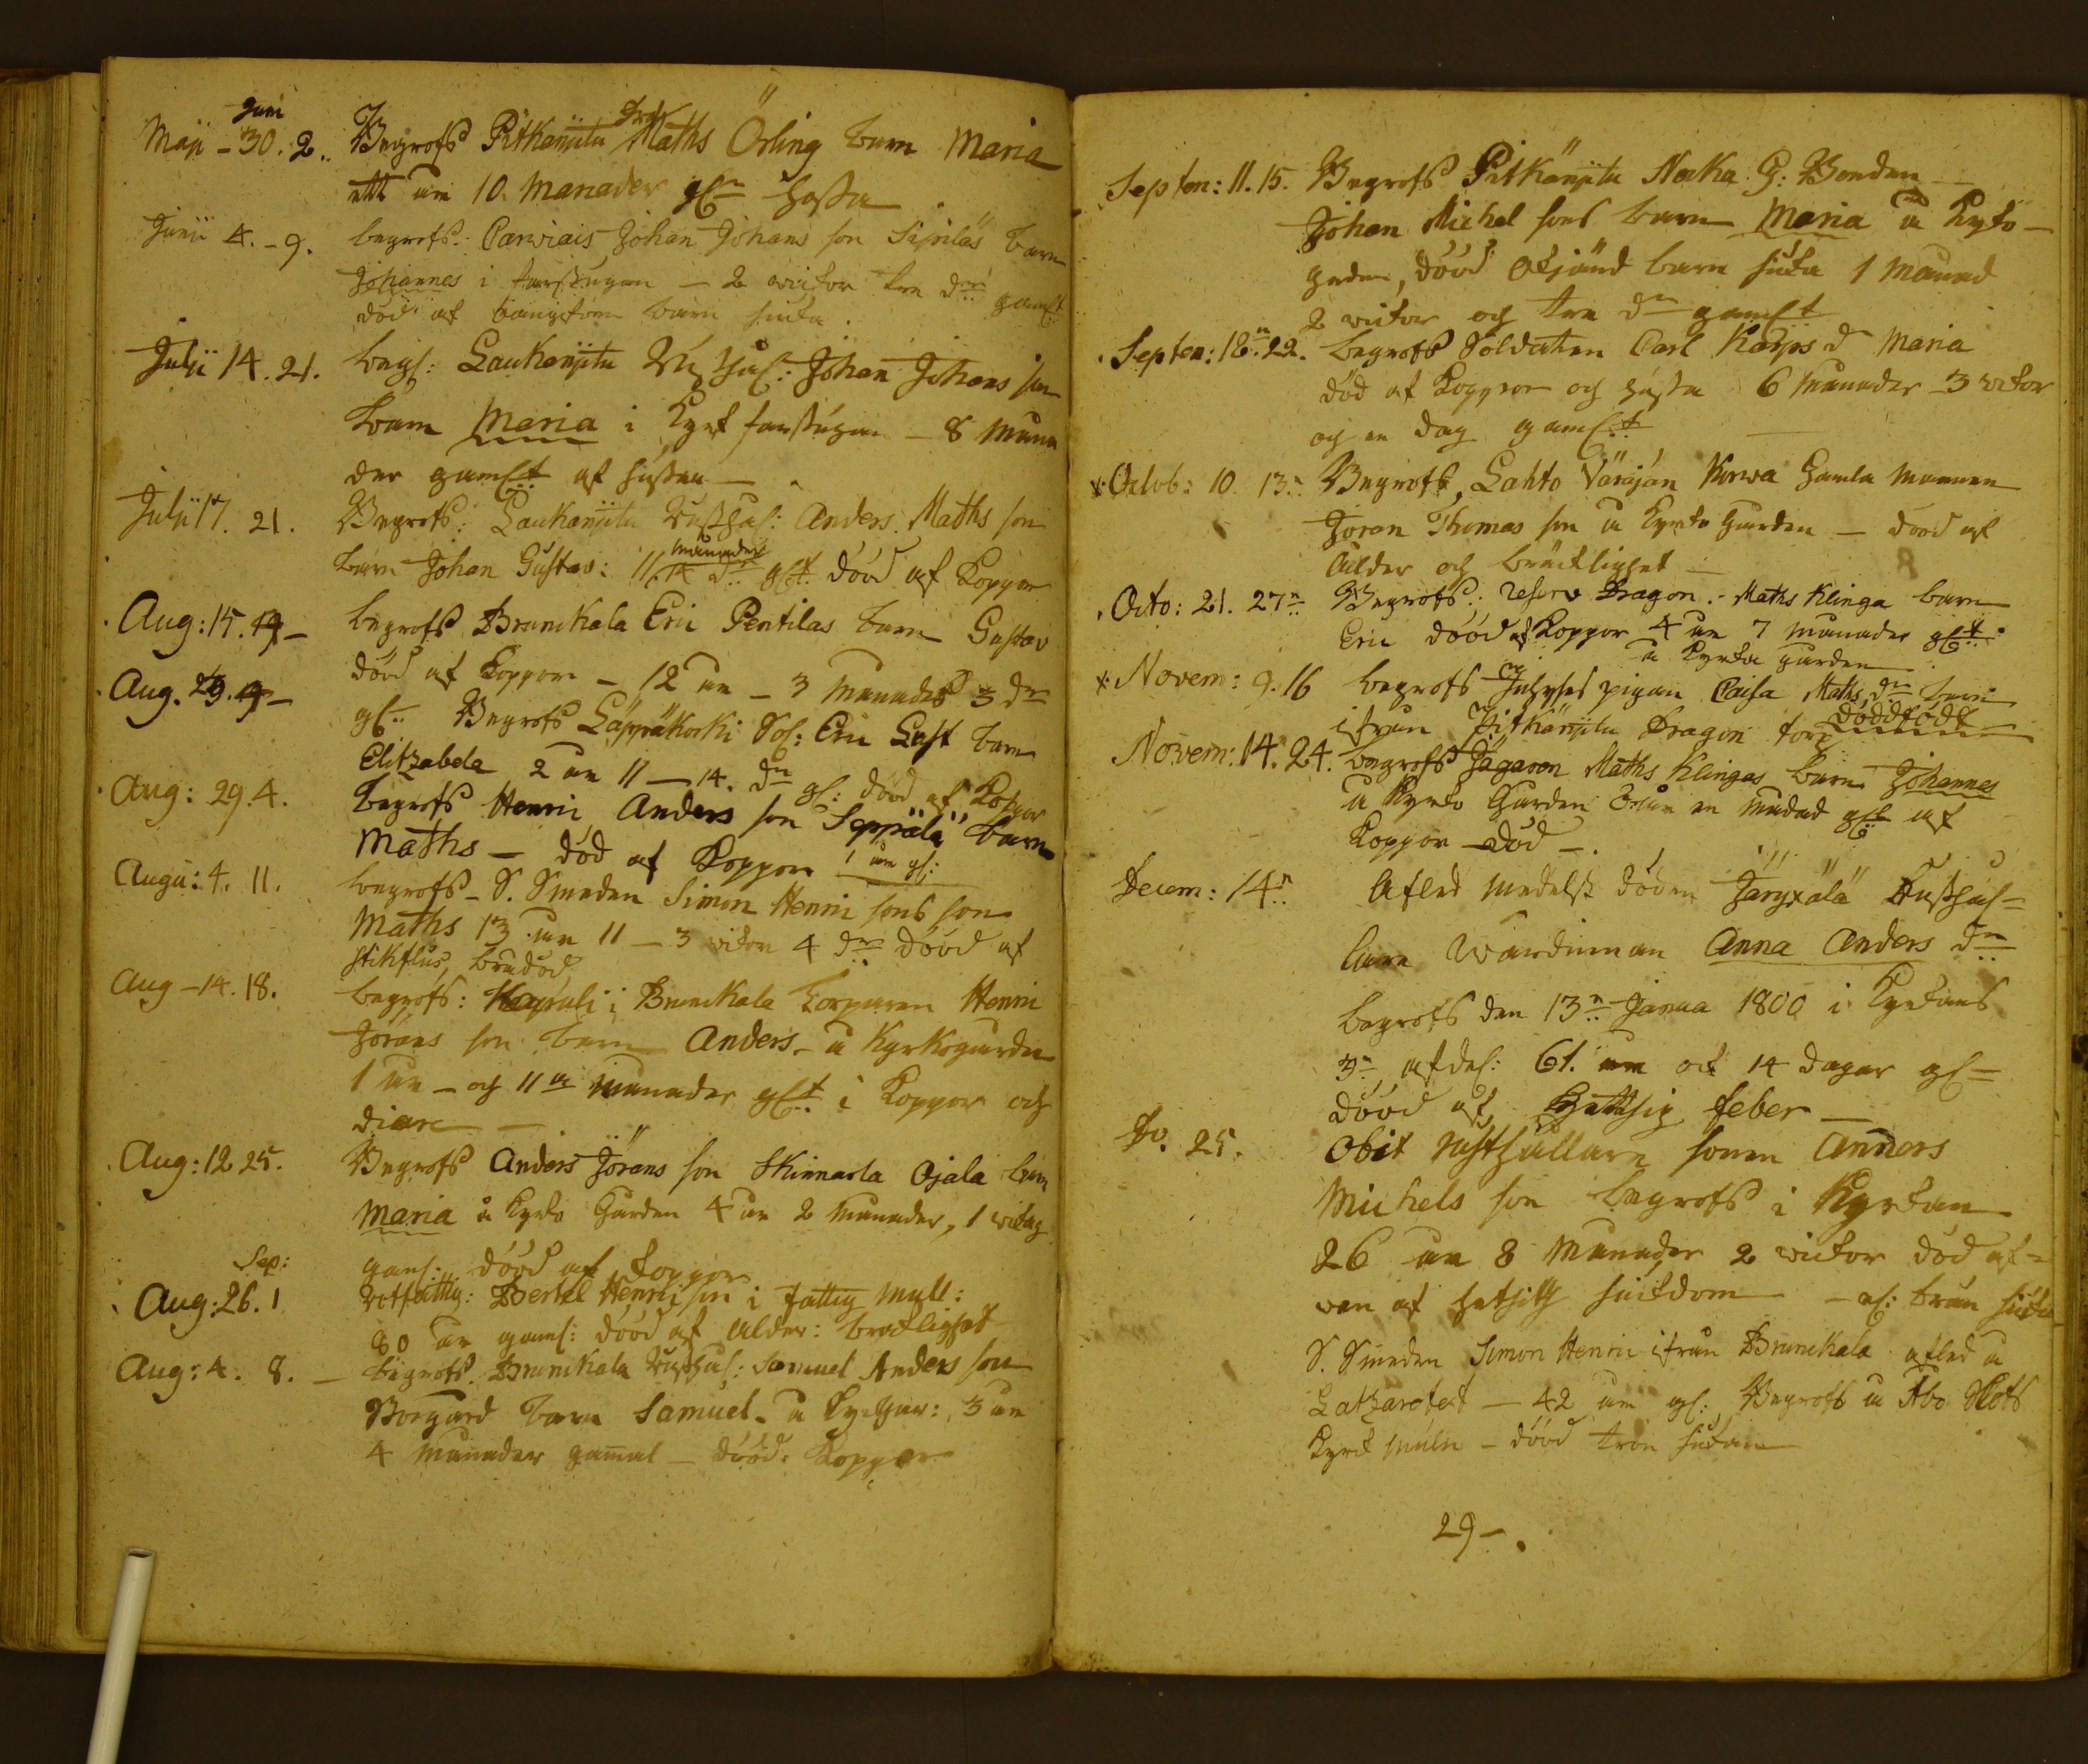 Juni
Maji - 30. 2. Begrofs Pitkänjitu Maths Örling barn Maria
ett 10. Manader hosta
Junii 4. - 9. begrofs: Carviais Johan Johans son Sipilas barn
Johannes i - 2 wickor tre dr gamlt
död af barn siuka.
Julii 14. 21. begr: Laukanjitu Johan Johans son
barn Maria i - 8 Mana
der gamlt af hosta -
Julii 17. 21. Begrofs: Laukanjitu Rusthal: Anders Maths son
manader
barn Johan Gustav: 11 14 dr glt döód af Koppor
Aug: 15. 19 - begrofs Brunikala Eric Pentilas barn Gustav
död af Koppor - 12 år - 3 Manader 3 dr
Aug. 19 - gl: Begrofs Läppäkoski Sol: Eric Last barn
Elitzabela 2 år 11 - 14. dr gl: döód af Koppor
Aug: 29. 4. begrofs Henric Anders son Seppälä barn
Maths - död af Koppor 1 år gl:
Augu: 4. 11. begrofs - S. Smeden Simon Henric sons son
Maths 13 år 11 - 3 wickor 4 dr döód af
stikflus, bradöd
Aug - 14. 18. begrofs: i Brunikala Torparen Henric
Jörans son barn Anders - å Kyrkogarden
1 år - och 11 manader glt i Koppor och
diare -
Aug: 12 25. Begrofs Anders Jörans son Skinnarla Ojala barn
Maria å Kyrko Garden 4 år 2 manader, 1
Sep: gaml: döód af koppor
Aug: 26. 1 Rotfattig: Bertel Henric son i Fattig
80 år gaml: döód af Alder: bräcklighet
Aug: 4. 8. - begrofs. Brunikala Rusthal: Samuel Anders son
Borgard barn Samuel - å 3 år
4 manader gammal - döód: Koppor
Septem: 11. 15. Begrofs Pitkänjitu Noka G: Bonden
Johan Michel sons barn Maria å Kyrko -
garden, döód Okjänd barn siuka 1 manad
2 wickor og tre dr gamlt
Septem: 18. 22. begrofs Soldaten Carl Karps d Maria
död af Koppor og hosta 6 manader 3 wikor
og en dag gamlt
Octob: 10. 13. Begrofs, Lahto Väräjän Korva Gamla mannen
Jöran Thomas son å Kyrko Garden - döód af
Ålder og bräcklighet
Octo: 21. 27 Begrofs: reserv Dragon. Maths Klinga barn
Eric döód af Koppor 4 år 7 manader glt
å Kyrko garden
Novem: 9. 16 begrofs pigan Caisa Maths dr barn
ifrån Pitkänjitu Dragon torp döddfödt
Novem: 14. 24. begrofs Jägaren Maths Klingas barn Johannes
å Kyrko Garden 3 år en glt af
Koppor död -
Decem: 14 Afled medelst döden Järyxälä Rusthal=
lare Wärdinnan Anna Anders dr
begrofs den 13 Janua 1800 i Kyrkans
3 afdel: 61. år och 14 dagar gl=
döód af, Hettsig feber -
Do. 25. Obiit rusthållare sonen Anders
Michels son begrofs i Kyrkan
26 år 8 Manader 2 wickor död af=
ven af hetsig siukdom -
S. Smeden Simon Henric ifrån Brunikala afled å
Latzaretet - 42 år gl: Begrofs å Åbo Slots
Kyrk - döód
29 - .